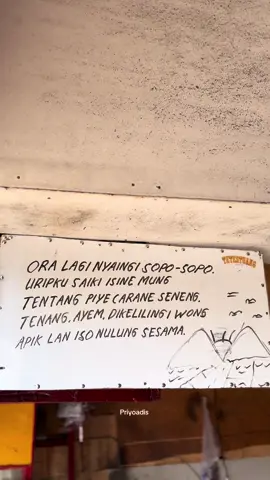 TNTENTRANG
ORA LAGI NYAINGI SOPO-SOPO.
URIPKU SAIKI ISINE MUNG
TENTANG PIYE CARANE SENENG.
TENANG. AYEM, DIKELILINGI WONG
APIK LAN ISO NULUNG SESAMA.
Priyoadis